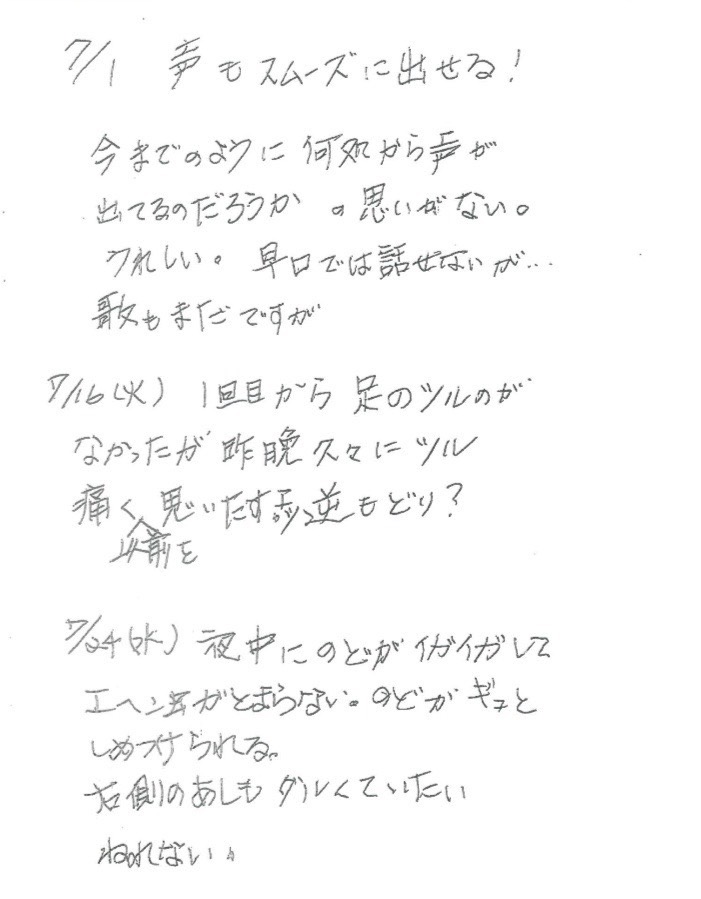 7/1 声もスムーズに出せる!
今までのように何処から声が
出てるのだろうか の思いがない。
うれしい。早口では話せないが…
歌もまだですが
7/16(火) 1回目から足のツルのが
なかったが昨晩久々にツル
痛く 思いだす 逆もどり?
以前を
7/24(水) 夜中にのどがイガイガして
エヘン虫がとまらない。のどがギュと
しめつけられる。
右側のあしもダルくていたい
ねれない。